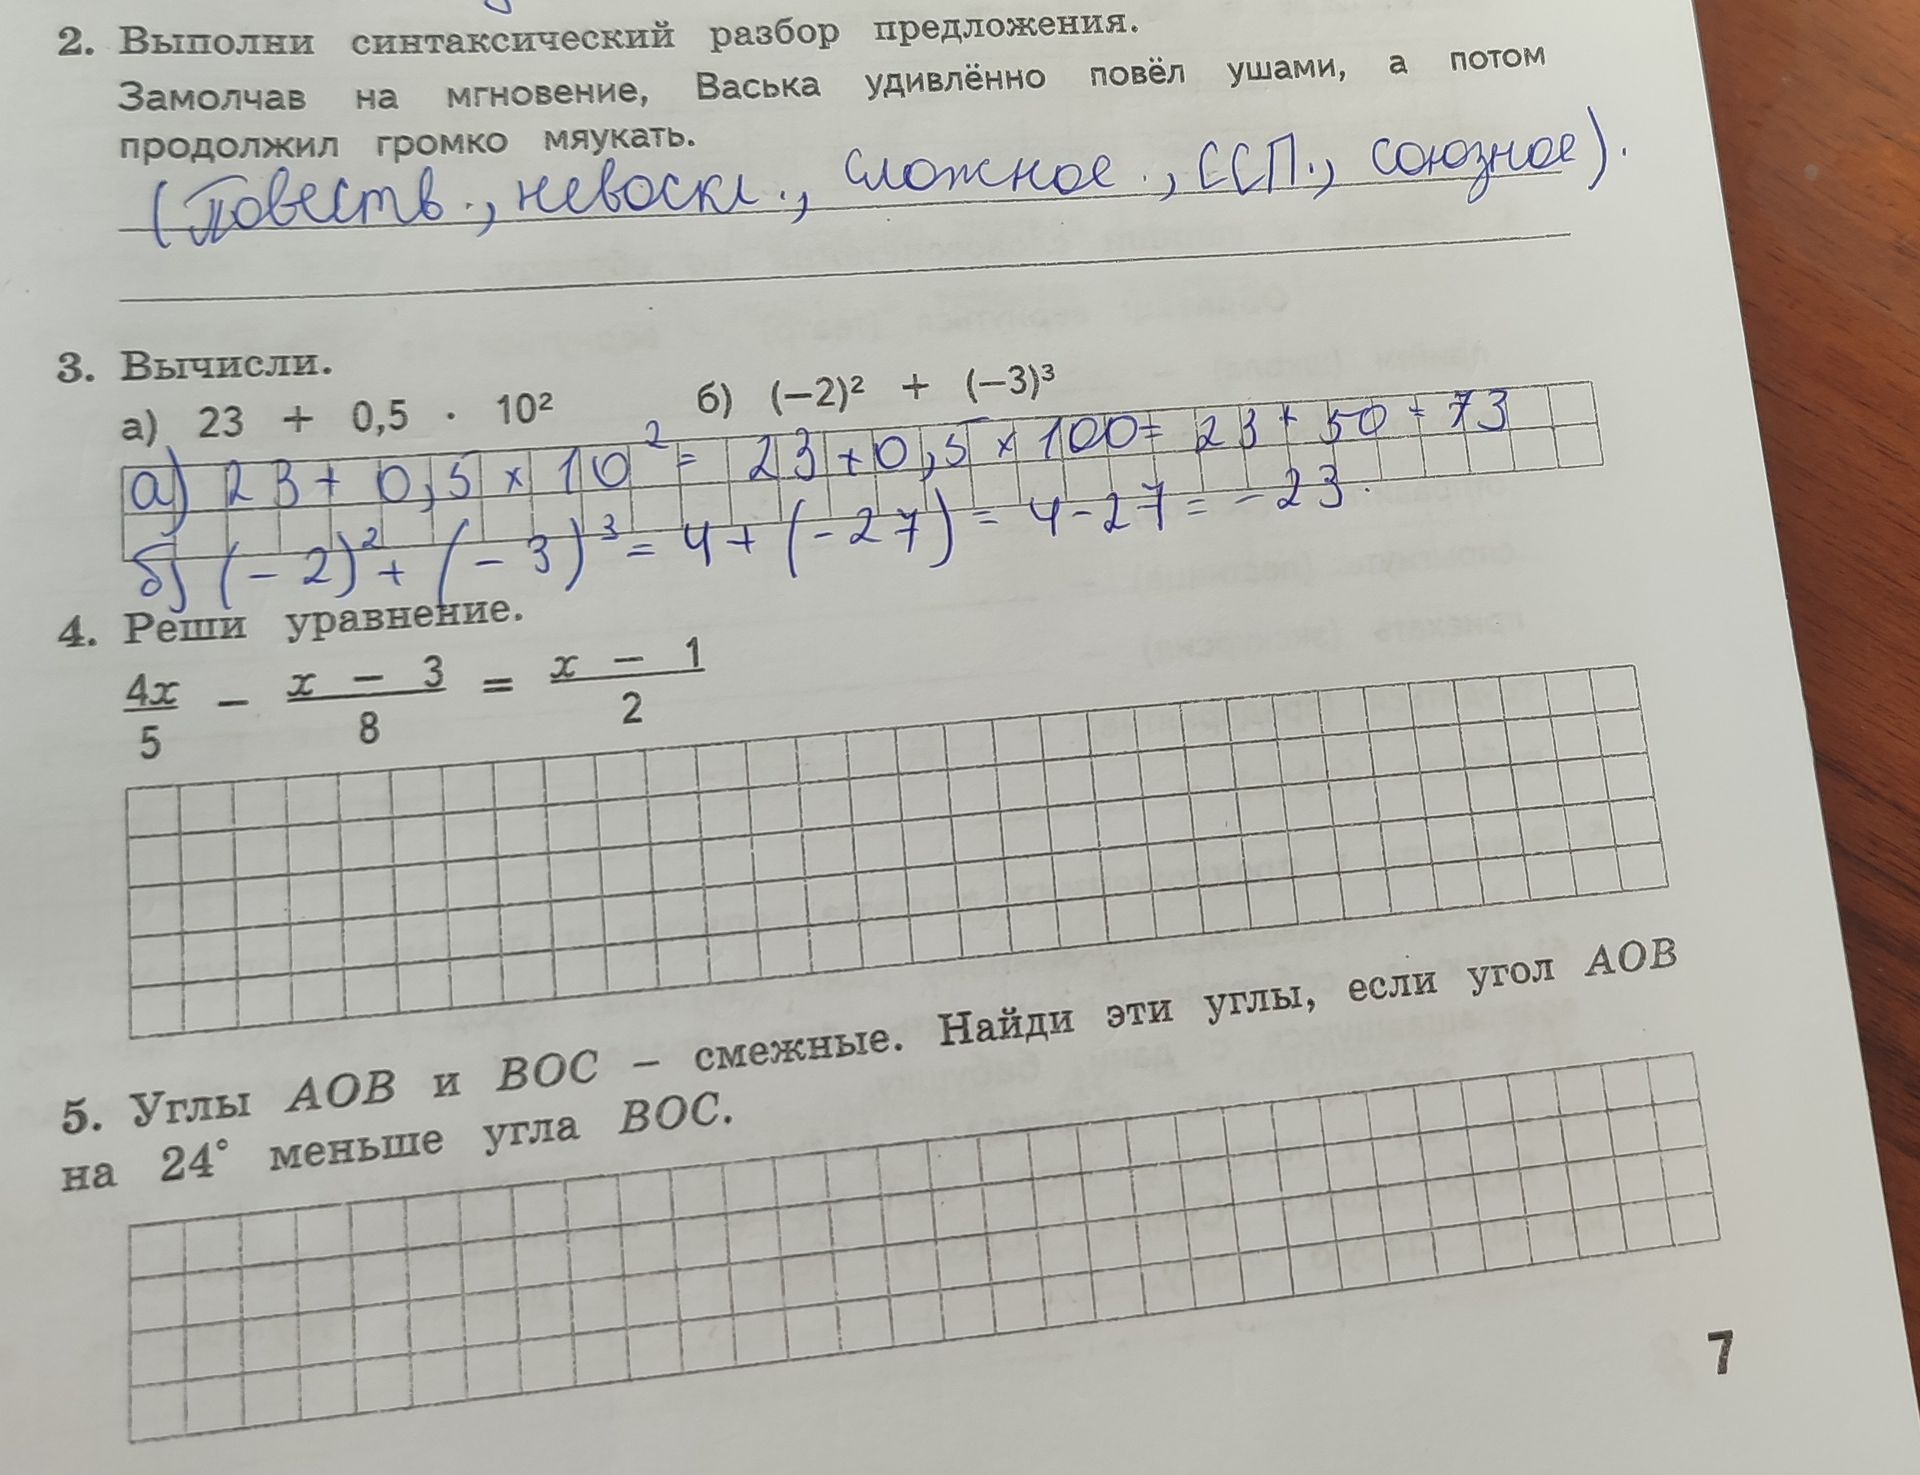 2. Выполни синтаксический разбор предложения.
Замолчав на мгновение, Васька удивлённо повёл ушами, а потом
продолжил громко мяукать.
(Повеств., невоскл., сложное., ССП., союзное).
3. Вычисли.
а) 23 + 0,5 · 10² б) (−2)² + (−3)³
а) 23 + 0,5 × 10² = 23 + 0,5 × 100 = 23 + 50 = 73
б) (−2)² + (−3)³ = 4 + (−27) = 4 − 27 = −23.
4. Реши уравнение.
4x/5 − x − 3/8 = x − 1/2
5. Углы AOB и BOC – смежные. Найди эти углы, если угол AOB
на 24° меньше угла BOC.
7